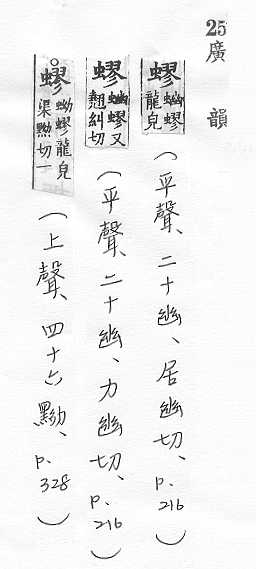 25廣韻
蟉 蚴蟉龍皃（平聲、二十幽、居幽切、p.216）
蟉 蚴蟉又翹糾切（平聲、二十幽、力幽切、p.216）
。蟉 蚴蟉龍皃渠黝切一（上聲、四十六黝、p.328）